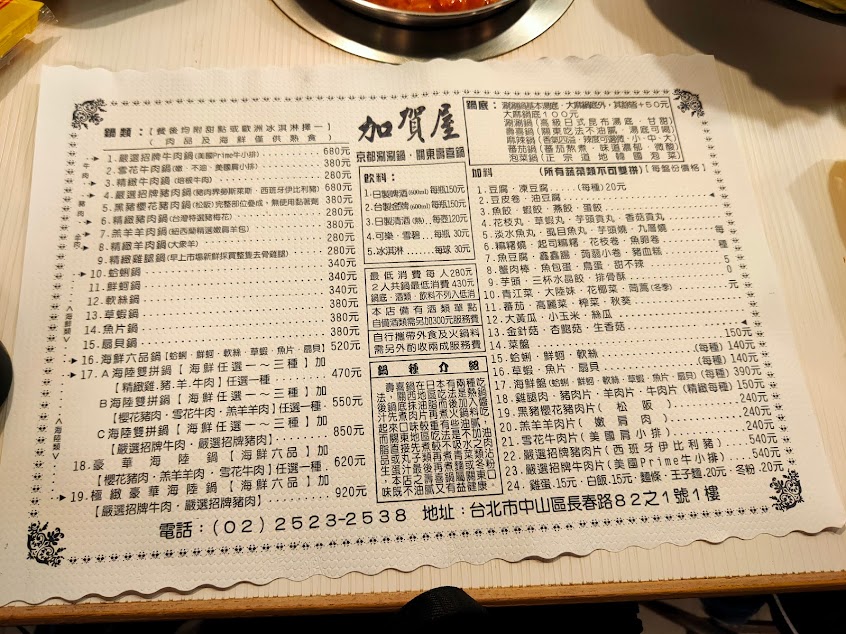 鍋類：【餐後均附甜點或歐洲冰淇淋擇一】
（肉品及海鮮僅供熟食）
牛肉
豬肉
羊肉
1. 嚴選招牌牛肉鍋(美國Prime牛小排) 680元
2. 雪花牛肉鍋(嫩、不油、美國肩小排) 380元
3. 精緻牛肉鍋(培根牛肉) 280元
4. 嚴選招牌豬肉鍋(豬肉界勞斯萊斯、西班牙伊比利豬) 680元
5. 黑豬櫻花豬肉鍋(松阪)完整部位疊成，無使用黏著劑 380元
6. 精緻豬肉鍋(台灣特選豬梅花) 280元
7. 羔羊羊肉鍋(紐西蘭精選嫩肩羊包) 380元
8. 精緻羊肉鍋(大衆羊) 280元
9. 精緻雞腿鍋(早上市場新鮮採買整隻去骨雞腿) 280元
<海鮮類>
10. 蛤蜊鍋 340元
11. 鮮蚵鍋 340元
12. 軟絲鍋 340元
13. 草蝦鍋 380元
14. 魚片鍋 380元
15. 扇貝鍋 380元
16. 海鮮六品鍋【蛤蜊、鮮蚵、軟絲、草蝦、魚片、扇貝】 520元
<海陸類>
17. A海陸雙拼鍋【海鮮任選一～三種】加
【精緻雞.豬.羊.牛肉】任選一種 470元
B海陸雙拼鍋【海鮮任選一～三種】加
【櫻花豬肉、雪花牛肉、羔羊羊肉】任選一種. 550元
C海陸雙拼鍋【海鮮任選一～三種】加
【嚴選招牌牛肉、嚴選招牌豬肉】 850元
18. 豪華海陸鍋【海鮮六品】加
【櫻花豬肉、羔羊羊肉、雪花牛肉】任選一種. 620元
19. 極緻豪華海陸鍋【海鮮六品】加
【嚴選招牌牛肉、嚴選招牌豬肉】 920元
加賀屋
京都涮涮鍋、關東壽喜鍋
飲料：
1. 日製啤酒(600ml)每瓶150元
2. 台製金牌(600ml)每瓶150元
3. 日製清酒(熱)..每壺120元
4. 可樂、雪碧....每瓶 30元
5. 冰淇淋........每球 30元
最低消費每人280元
2人共鍋最低消費430元
鍋底、酒類、飲料不列入低消
本店備有酒類單點
自備酒類另加300元服務費
自行攜帶外食及火鍋料
需另外酌收兩成服務費
鍋種介紹
鍋底：
涮涮鍋基本湯底，大麻鍋底外，其餘皆+50元
大麻鍋底100元
涮涮鍋(高級日式昆布湯底，甘甜)
壽喜鍋(關東吃法不油膩，湯底可喝)
麻辣鍋(香氣四溢，辣度可調微、小、中、大)
番茄鍋(番茄熬煮，味道濃郁，微酸)
泡菜鍋(正宗道地韓國泡菜)
加料 (所有蔬菜類不可雙拼)【每盤份價格】
1. 豆腐、凍豆腐..(每種)20元
2. 豆皮卷、油豆腐
3. 魚餃、蝦餃、燕餃、蛋餃
4. 花枝丸、草蝦丸、芋頭貢丸、香菇貢丸
5. 淡水魚丸、虱目魚丸、芋頭燒、九層燒
6. 糯糬燒、起司糯糬、花枝卷、魚卵卷
7. 魚豆腐、鑫鑫腸、蒟蒻小卷、豬血糕
8. 蟹肉棒、魚包蛋、鳥蛋、甜不辣
9. 芋頭、三杯水晶餃、排骨酥
10. 青江菜、大陸妹、花椰菜、茼萵(冬季)
11. 番茄、高麗菜、榨菜、秋葵
12. 大黃瓜、小玉米、絲瓜
13. 金針菇、杏鮑菇、生香菇
每種50元
14. 菜盤 150元
15. 蛤蜊、鮮蚵、軟絲 (每種) 140元
16. 草蝦、魚片、扇貝 (每種) 140元
17. 海鮮盤(蛤蜊、鮮蚵、軟絲、草蝦、魚片、扇貝)(每種) 390元
18. 雞腿肉、豬肉片、羊肉片、牛肉片(精緻每種) 150元
19. 黑豬櫻花豬肉片(松阪) 240元
20. 羔羊羊肉片(嫩肩肉) 240元
21. 雪花牛肉片(美國肩小排) 240元
22. 嚴選招牌豬肉片(西班牙伊比利豬) 540元
23. 嚴選招牌牛肉片(美國Prime牛小排) 540元
24. 雞蛋.15元、白飯.15元、麵條、王子麵.20元、冬粉.20元
電話：(02)2523-2538 地址：台北市中山區長春路82之1號1樓